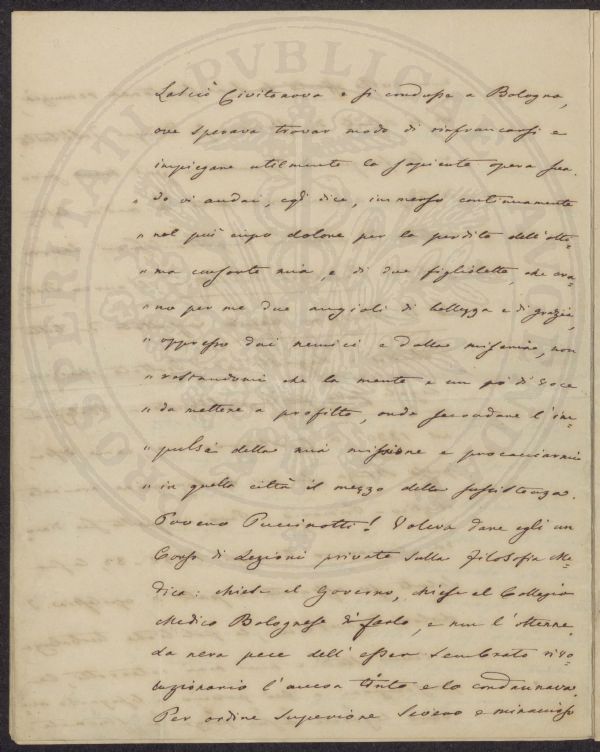 Lasciò Civitanova e si condusse a Bologna,
ove sperava trovar modo di rinfrancarsi e
impiegare utilmente la sapiente opera sua.
" Io vi andai, egli dice, immerso continuamente
" nel più cupo dolore per la perdita dell'otti-
" ma consorte mia, e di due figliolette, che era-
" no per me due angioli di bellezza e di grazia,
" oppresso dai nemici e dalla miseria, non
" restandomi che la mente e un pò di voce
" da mettere a profitto, onde secondare l'im-
" pulso della mia missione e procacciarmi
" in quella città il mezzo della sussistenza.
Povero Puccinotti! Voleva dare egli un
Corso di Lezioni private sulla Filosofia Me-
dica: chiese al Governo, chiese al Collegio
Medico Bolognese di farlo, e non l'ottenne.
La nera pece dell'esser sembrato rivo-
luzionario l'aveva tinto e lo condannava.
Per ordine superiore severo e minaccioso
PROSPERITATI PVBLICAE AVGENDAE